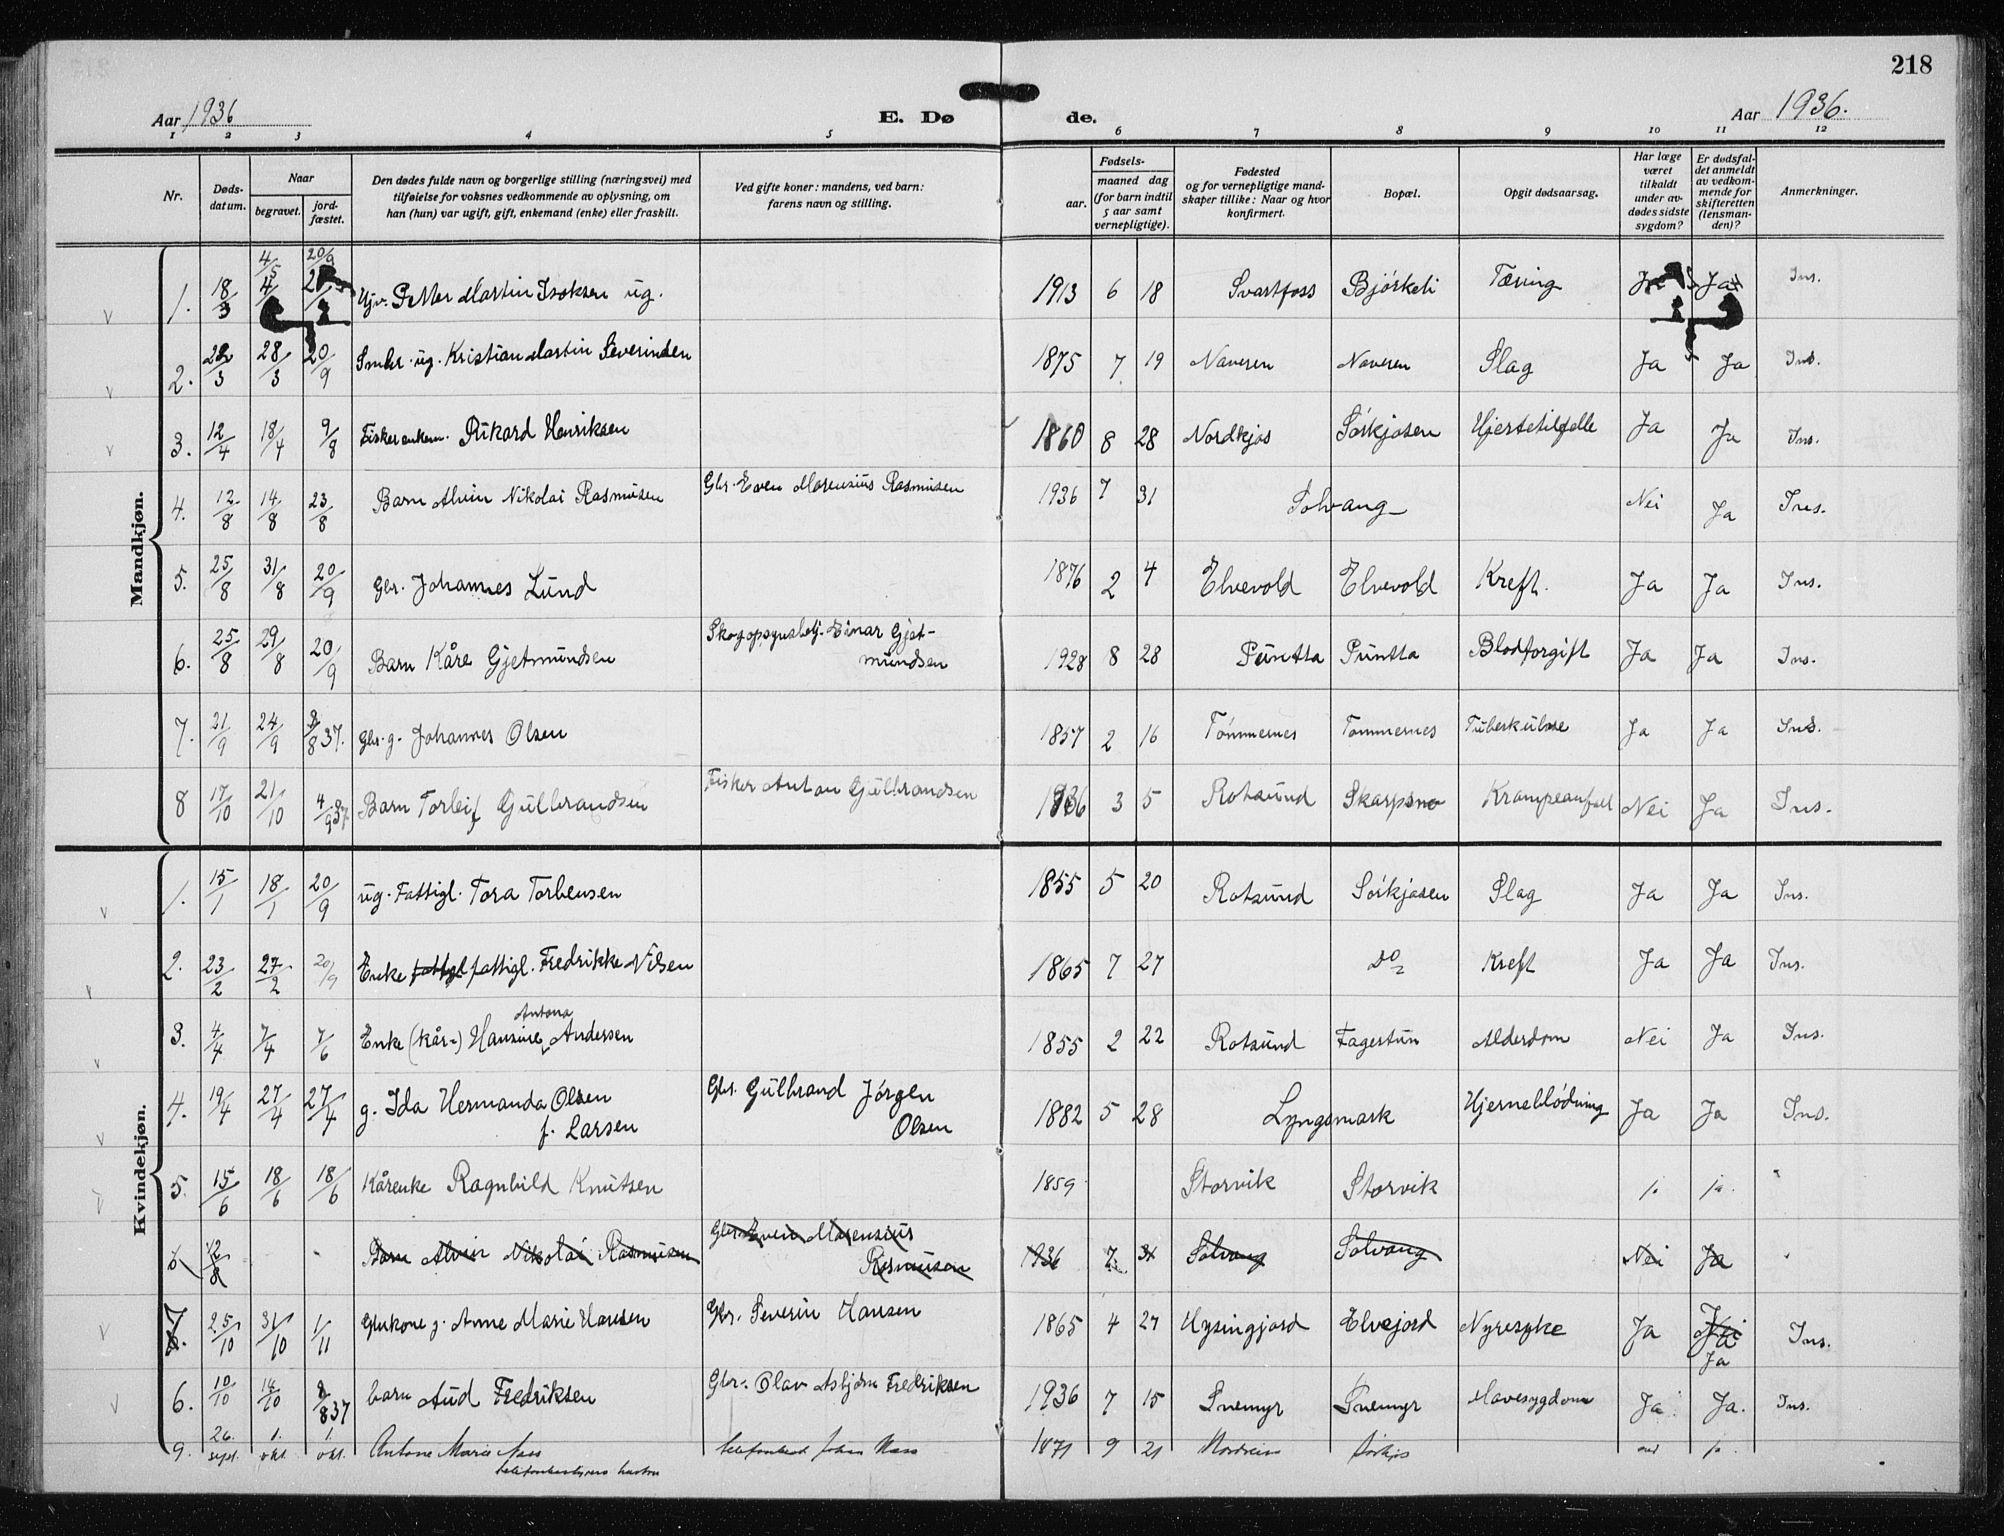 218
Aar 1936
E. Dø
de.
Aar 1936.
1 2 3 4 5 6 7 8 9 10 11 12
Nr.
Døds-
datum.
Naar
begravet.
jord-
fæstet.
Den dødes fulde navn og borgerlige stilling (næringsvei) med
tilføielse for voksnes vedkommende av oplysning, om
han (hun) var ugift, gift, enkemand (enke) eller fraskilt.
Ved gifte koner: mandens, ved barn:
farens navn og stilling.
Fødsels-
aar.
maaned dag
(for barn indtil
5 aar samt
vernepligtige).
Fødested
og for vernepligtige mand-
skaper tillike: Naar og hvor
konfirmert.
Bopæl.
Opgit dødsaarsag.
Har læge
været
tilkaldt
under av-
dødes sidste
sygdom?
Er dødsfal-
det anmeldt
av vedkom-
mende for
skifteretten
(lensman-
den)?
Anmerkninger.
Mandkjøn.
4/5 20/9
1. 18/3 4/5 Petter Martin Isaksen ug. 1913 6 18 Svartfoss Bjørkeli Tæring Ja Ins.
2. 22/3 28/3 20/9 ug. Kristian Martin Severinsen 1875 7 19 Naveren Naveren Slag Ja Ja Ins.
3. 12/4 18/4 9/8 Fisker enkem. Rikard Henriksen 1860 8 28 Nordkjos Sörkjosen Hjertetilfelle Ja Ja Ins.
4. 12/8 14/8 23/8 Barn Alvin Nikolai Rasmusen Gbr. Even Marensius Rasmusen 1936 7 31 Solvang Nei Ja Ins.
5. 25/8 31/8 20/9 Gbr. Johannes Lund 1876 2 4 Elvevold Elvevold Kreft. Ja Ja Ins.
6. 25/8 29/8 20/9 Barn Kåre Gjetmundsen Skogopsynsbetj. Einar Gjet-
mundsen 1928 8 28 Puntta Puntta Blodforgift Ja Ja Ins.
7. 21/9 24/9 8/8 37. Gbr. g. Johannes Olsen 1857 2 16 Tømmernes Tømmernes Tuberkulose Ja Ja Ins.
8 17/10 21/10 4/9 37. Barn Torleif Gulbrandsen Fisker Anton Gulbrandsen 1936 3 5 Rotsund Skarpsno Krampeanfall Nei Ja Ins.
Kvindekjøn.
1. 15/1 18/1 20/9 ug. Fattigl. Tora Torbensen 1855 5 20 Rotsund Sörkjosen Slag Ja Ja Ins.
2. 23/2 27/2 20/9 Enke fattigl fattigl. Fredrikke Nilsen 1865 7 27 Do Kreft Ja Ja Ins.
Antona
3. 4/4 7/4 7/6 Enke (kår-) Hansine Andersen 1855 2 22 Rotsund Fagertun Alderdom Nei Ja Ins.
4. 19/4 27/4 27/4 g. Ida Hermanda Olsen
f. Larsen Gbr. Gulbrand Jörgen
Olsen 1882 5 28 Lyngsmark Hjerneblödning Ja Ja Ins.
5. 15/6 18/6 18/6 Kårenke Ragnhild Knutsen 1859 Storvik Storvik ja ja "
6 12/8 - - Barn Alvin Nikolai Rasmusen Gbr. Even Marensius
Rasmusen 1936 7 31 Solvang Solvang Nei Ja "
7 25/10 31/10 1/11 Gbrkone g. Anne Marie Hansen Gbr. Severin Hansen 1865 4 27 Hysingjord Elvejord Nyresyke Ja Ja Ins.
6. 10/10 14/10 8/8 37 barn Aud Fredriksen Gbr. Olav Asbjörn Fredriksen 1936 7 15 Snemyr Snemyr Mavesygdom Ja Ja. Ins.
9. 26. sept. 1. okt. 1. okt. Antone Marie 1871 9 21 ja